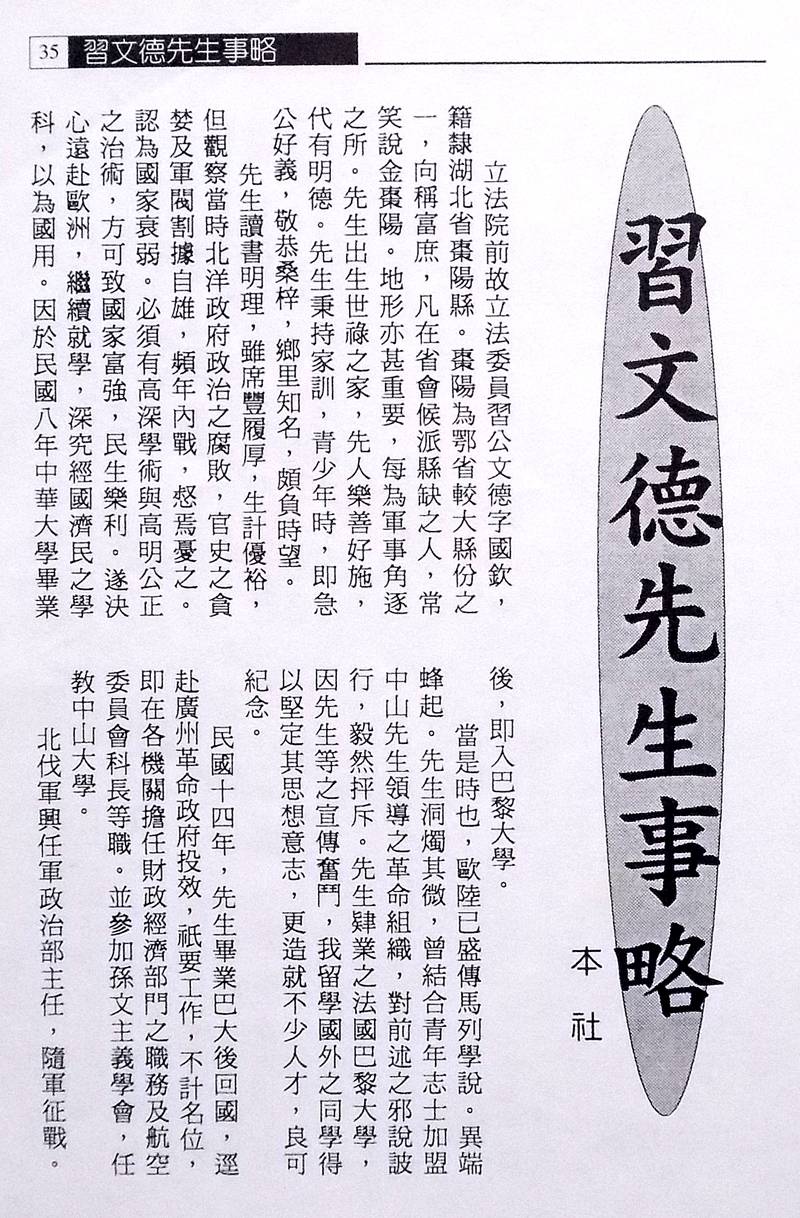 35
習文德先生事略
習文德先生事略
本社
立法院前故立法委員習公文德字國欽，
籍隸湖北省棗陽縣。棗陽為鄂省較大縣份之
一，向稱富庶，凡在省會候派縣缺之人，常
笑說金棗陽。地形亦甚重要，每為軍事角逐
之所。先生出生世祿之家，先人樂善好施，
代有明德。先生秉持家訓，青少年時，即急
公好義，敬恭桑梓，鄉里知名，頗負時望。
先生讀書明理，雖席豐履厚，生計優裕，
但觀察當時北洋政府政治之腐敗，官史之貪
婪及軍閥割據自雄，頻年內戰，惄焉憂之。
認為國家衰弱。必須有高深學術與高明公正
之治術，方可致國家富強，民生樂利。遂決
心遠赴歐洲，繼續就學，深究經國濟民之學
科，以為國用。因於民國八年中華大學畢業
後，即入巴黎大學。
當是時也，歐陸已盛傳馬列學說。異端
蜂起。先生洞燭其微，曾結合青年志士加盟
中山先生領導之革命組織，對前述之邪說詖
行，毅然抨斥。先生肄業之法國巴黎大學，
因先生等之宣傳奮鬥，我留學國外之同學得
以堅定其思想意志，更造就不少人才，良可
紀念。
民國十四年，先生畢業巴大後回國，逕
赴廣州革命政府投效，祇要工作，不計名位，
即在各機關擔任財政經濟部門之職務及航空
委員會科長等職。並參加孫文主義學會，任
教中山大學。
北伐軍興任軍政治部主任，隨軍征戰。